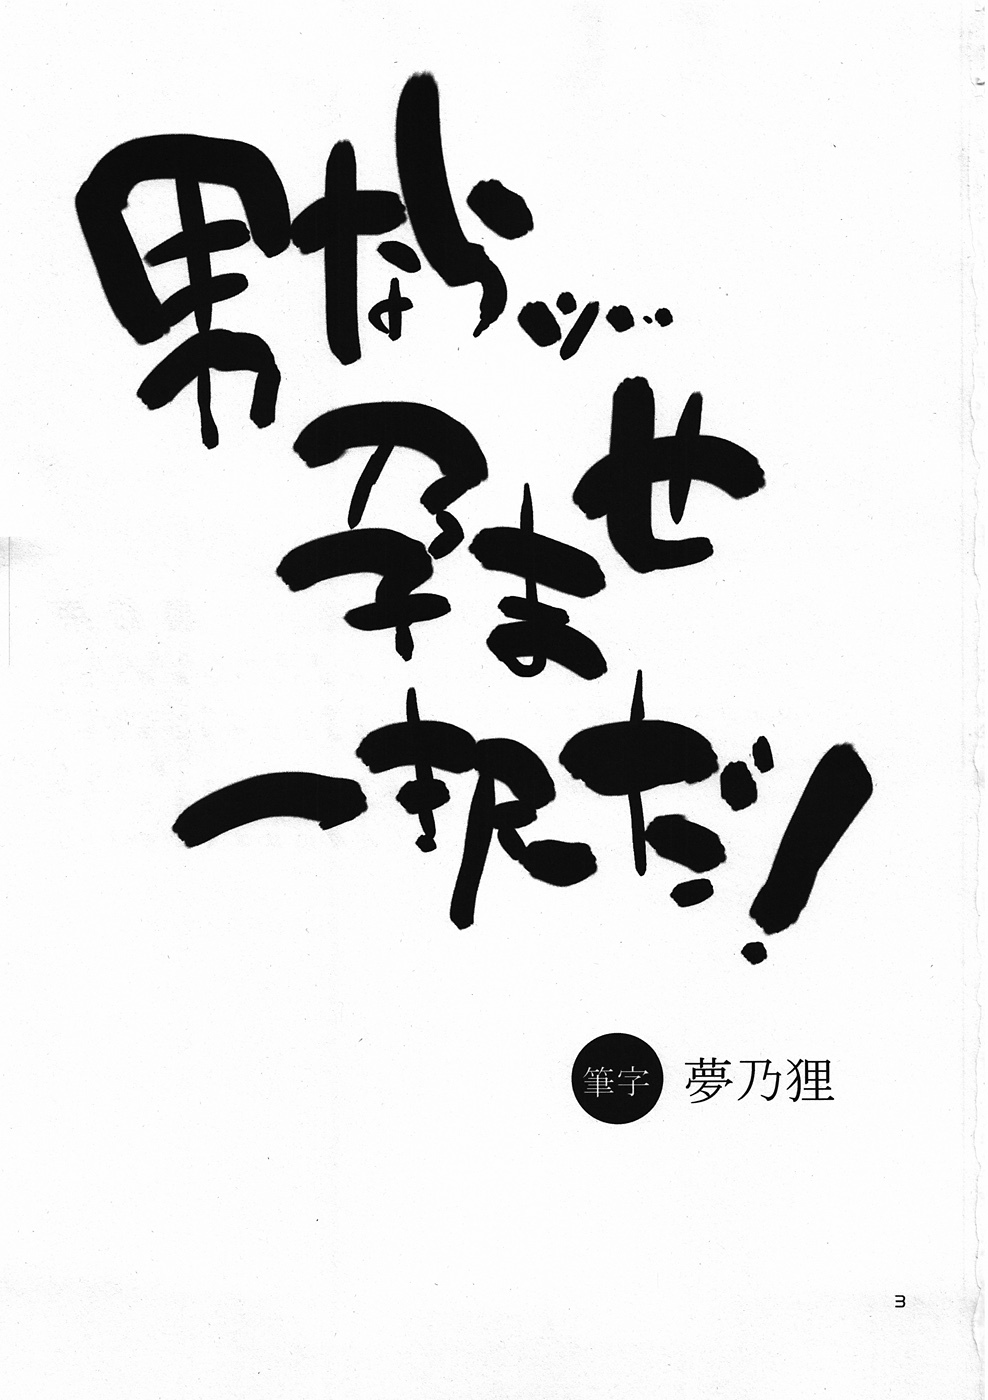 男ならッ…
孕ませ
一択だ！
筆字 夢乃狸
3